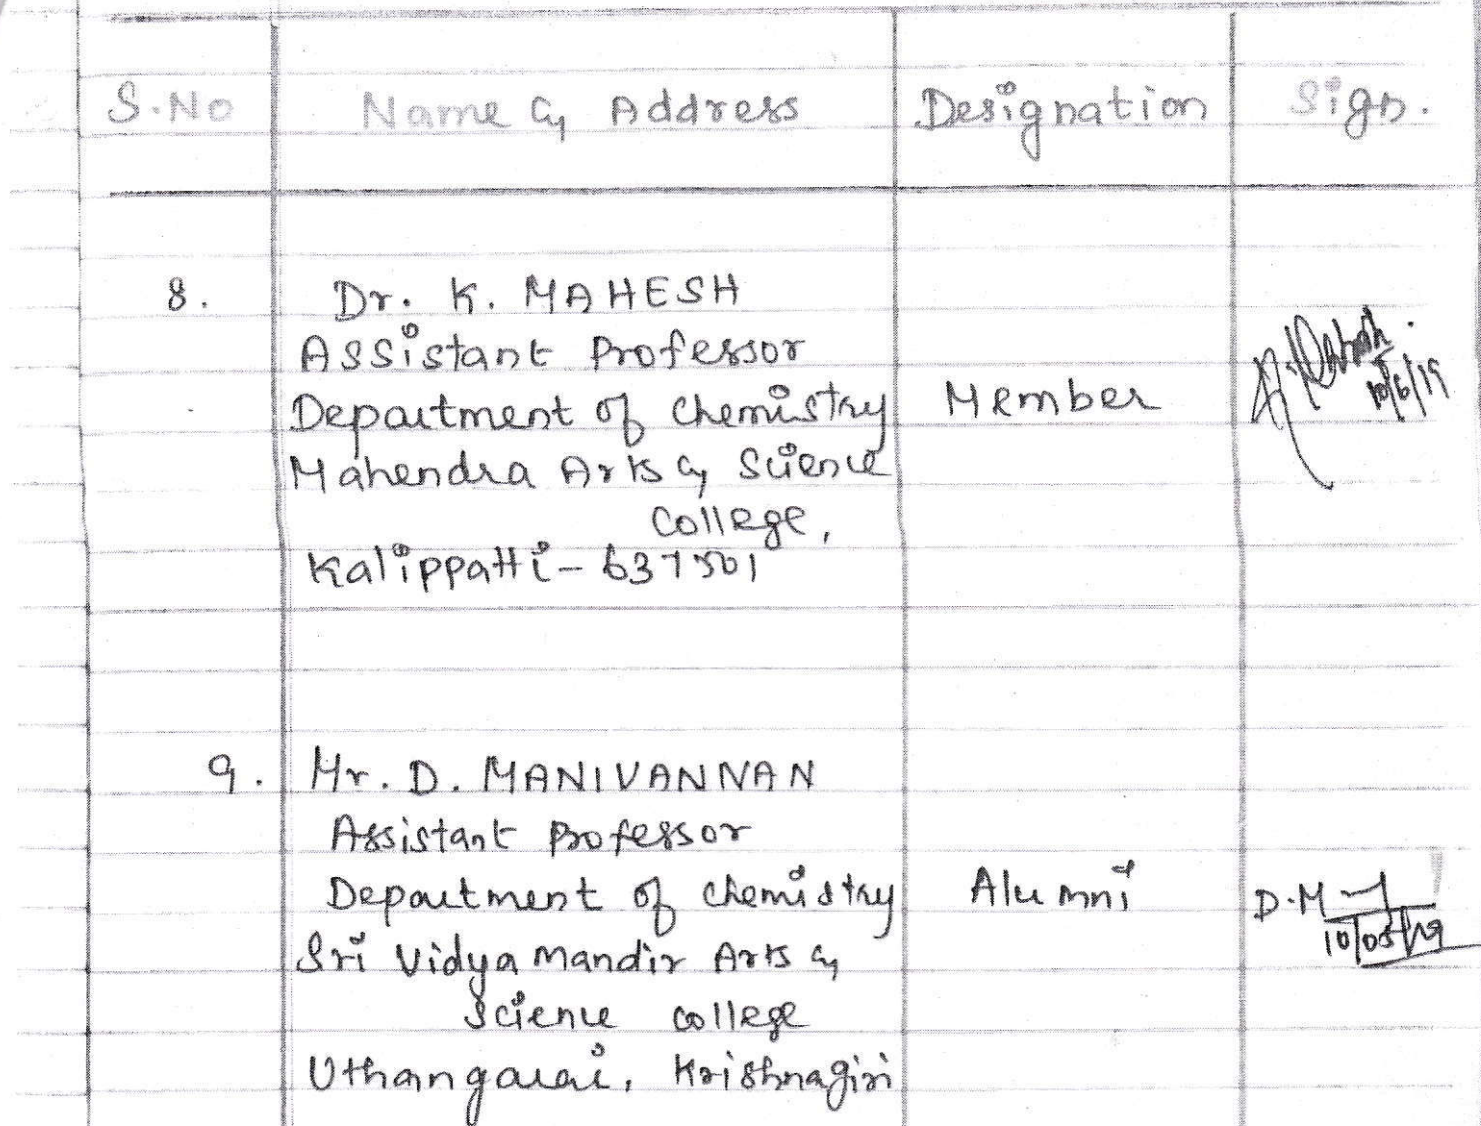 S.No Name & Address Designation Sign.
8. Dr. K. MAHESH
Assistant Professor
Department of Chemistry Member
Mahendra Arts & Science
College,
Kalippatti - 637501
10/6/19
9. Mr. D. MANIVANNAN
Assistant Professor
Department of Chemistry Alumni D.M
Sri Vidya Mandir Arts & 10/05/19
Science College
Uthangarai, Krishnagiri